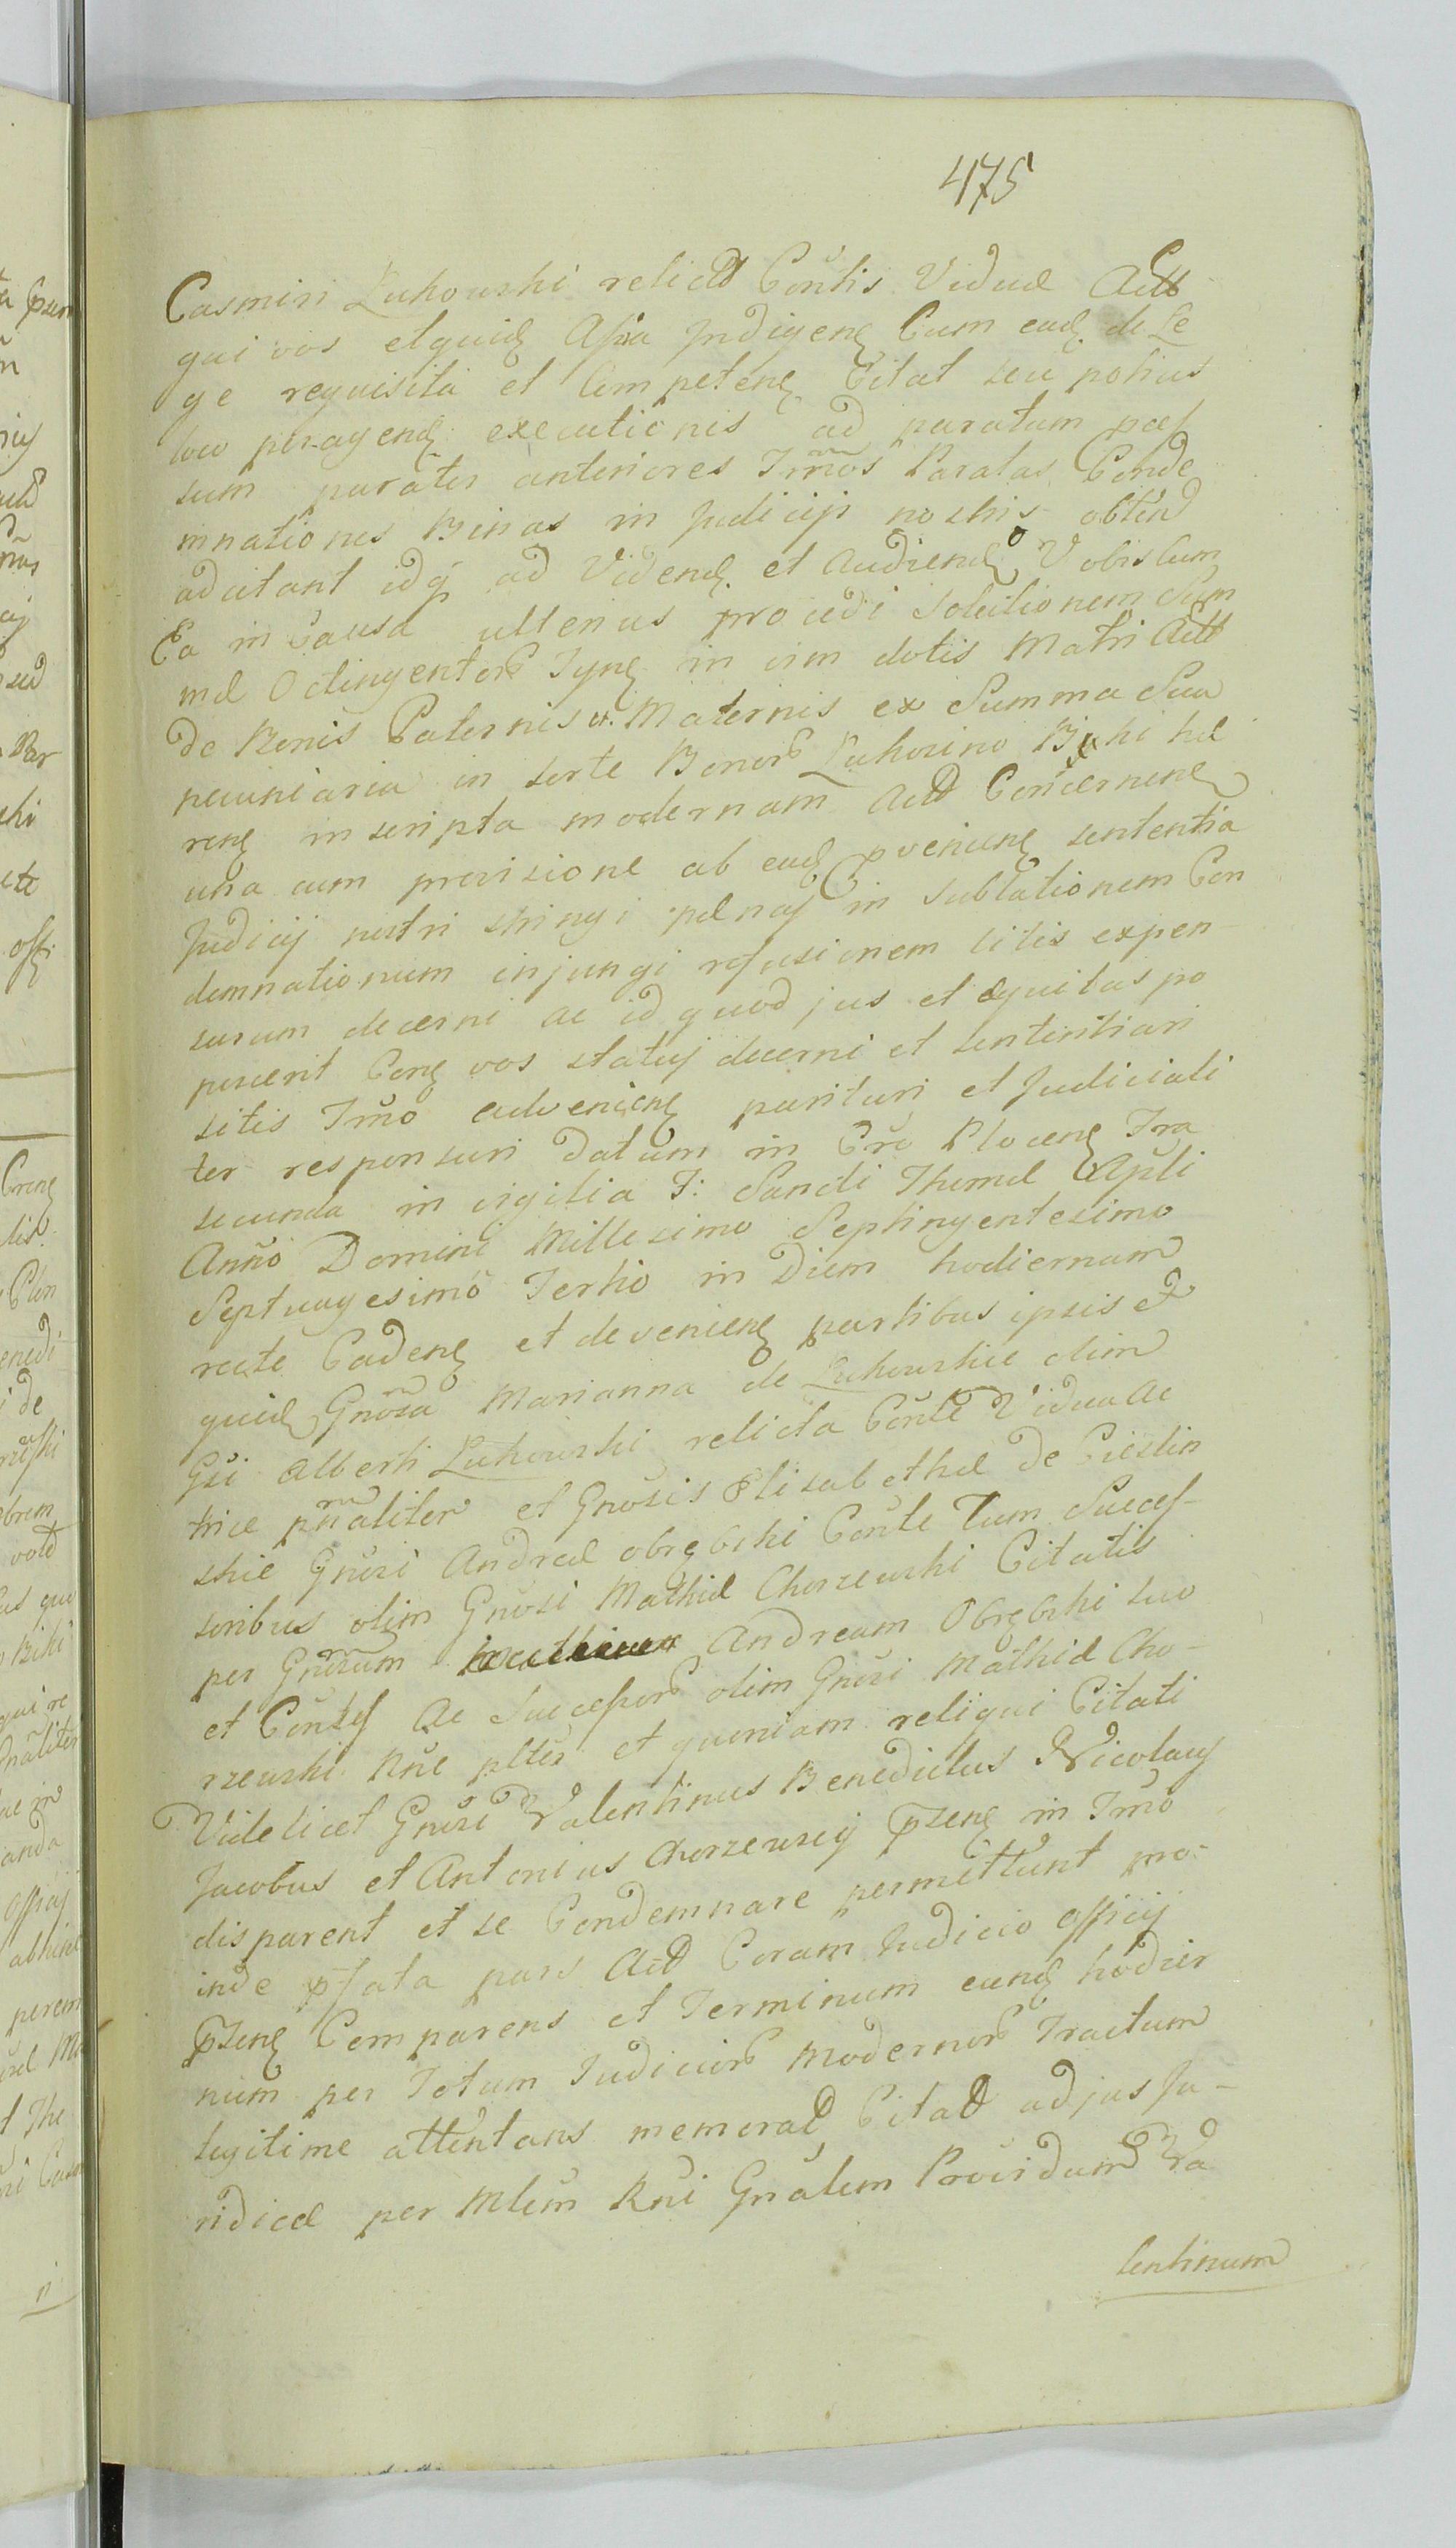 475
Casmiri Lukowski relictæ Contis Viduæ Actt
qui vos etquidę Assa Jndigenę Cum eadę de Le
ge requisita et Competenę Citat seu potius
loco peragendę executionis ad paratum pos
sum paratis anteriores Tm̃os Paratas Conde
mnationes Binas in Judicijs nostris obtent
adcitant idq̨ ad Videndę et Audiendę Vobiscum
Ea in Causa ulterius procedi Solutionem Sum
mæ Octingentor Tynę in vim dotis Matri Actt
de Bonis Paternis et Maternis ex Summa Sua
pecuniaria in sorte Bonor Lukowino Biki hæ
renę inscripta modernam Actt Concernenę
una cum provisione ab eadę pvenienę sententia
Judicij nostri stringi pænas in Sublationem Con
demnationum injungi refusionem litis expen
sarum decerni ac id quod jus et æquitas po
poscerit Conę vos statuj decerni et sententiari
sitis Tm̃o advenienę parituri et Judiciali
ter responsuri Datum in Crõ Plocenę Fra
secunda in vigilia F: Sancti Thomæ Apłi
Anno Domini Millesimo Septingentesimo
Septuagesimo Tertio in Diem hodiernam
recte Cadenę et devenienę partibus ipsis et
quidę Gnosa Marianna de Lukowskie olim
Gsi Alberti Lukowski relicta Conte Vidua Ac
trice pñaliter et Gnosis Elisabethæ de Cieslin
skie Gnosi Andreæ Obrębski Conte Tum Succes-
soribus olim Gnosi Mathiæ Chorzewski Citatis
per Gnosum Andream Obrębski suo
et Contis Ac Successor olim Gnosi Mathiæ Cho-
rzewski Rñe pltes et quoniam reliqui Citati
Videlicet Gnosi Valentinus Benedictus Nicolaus
Jacobus et Antonius Chorzewscy pzenę in Tm̃o
disparent et se Condemnare permittunt pro-
inde pfata pars Actt Coram Judicio Officij
pzenę Comparens et Terminum eundę hodier
num per Totum Judicior Modernor Tractum
legitime attentans memorat Citatt ad jus Ju-
ridice per Mlem Rni Gnalem Providum Va
lentinum